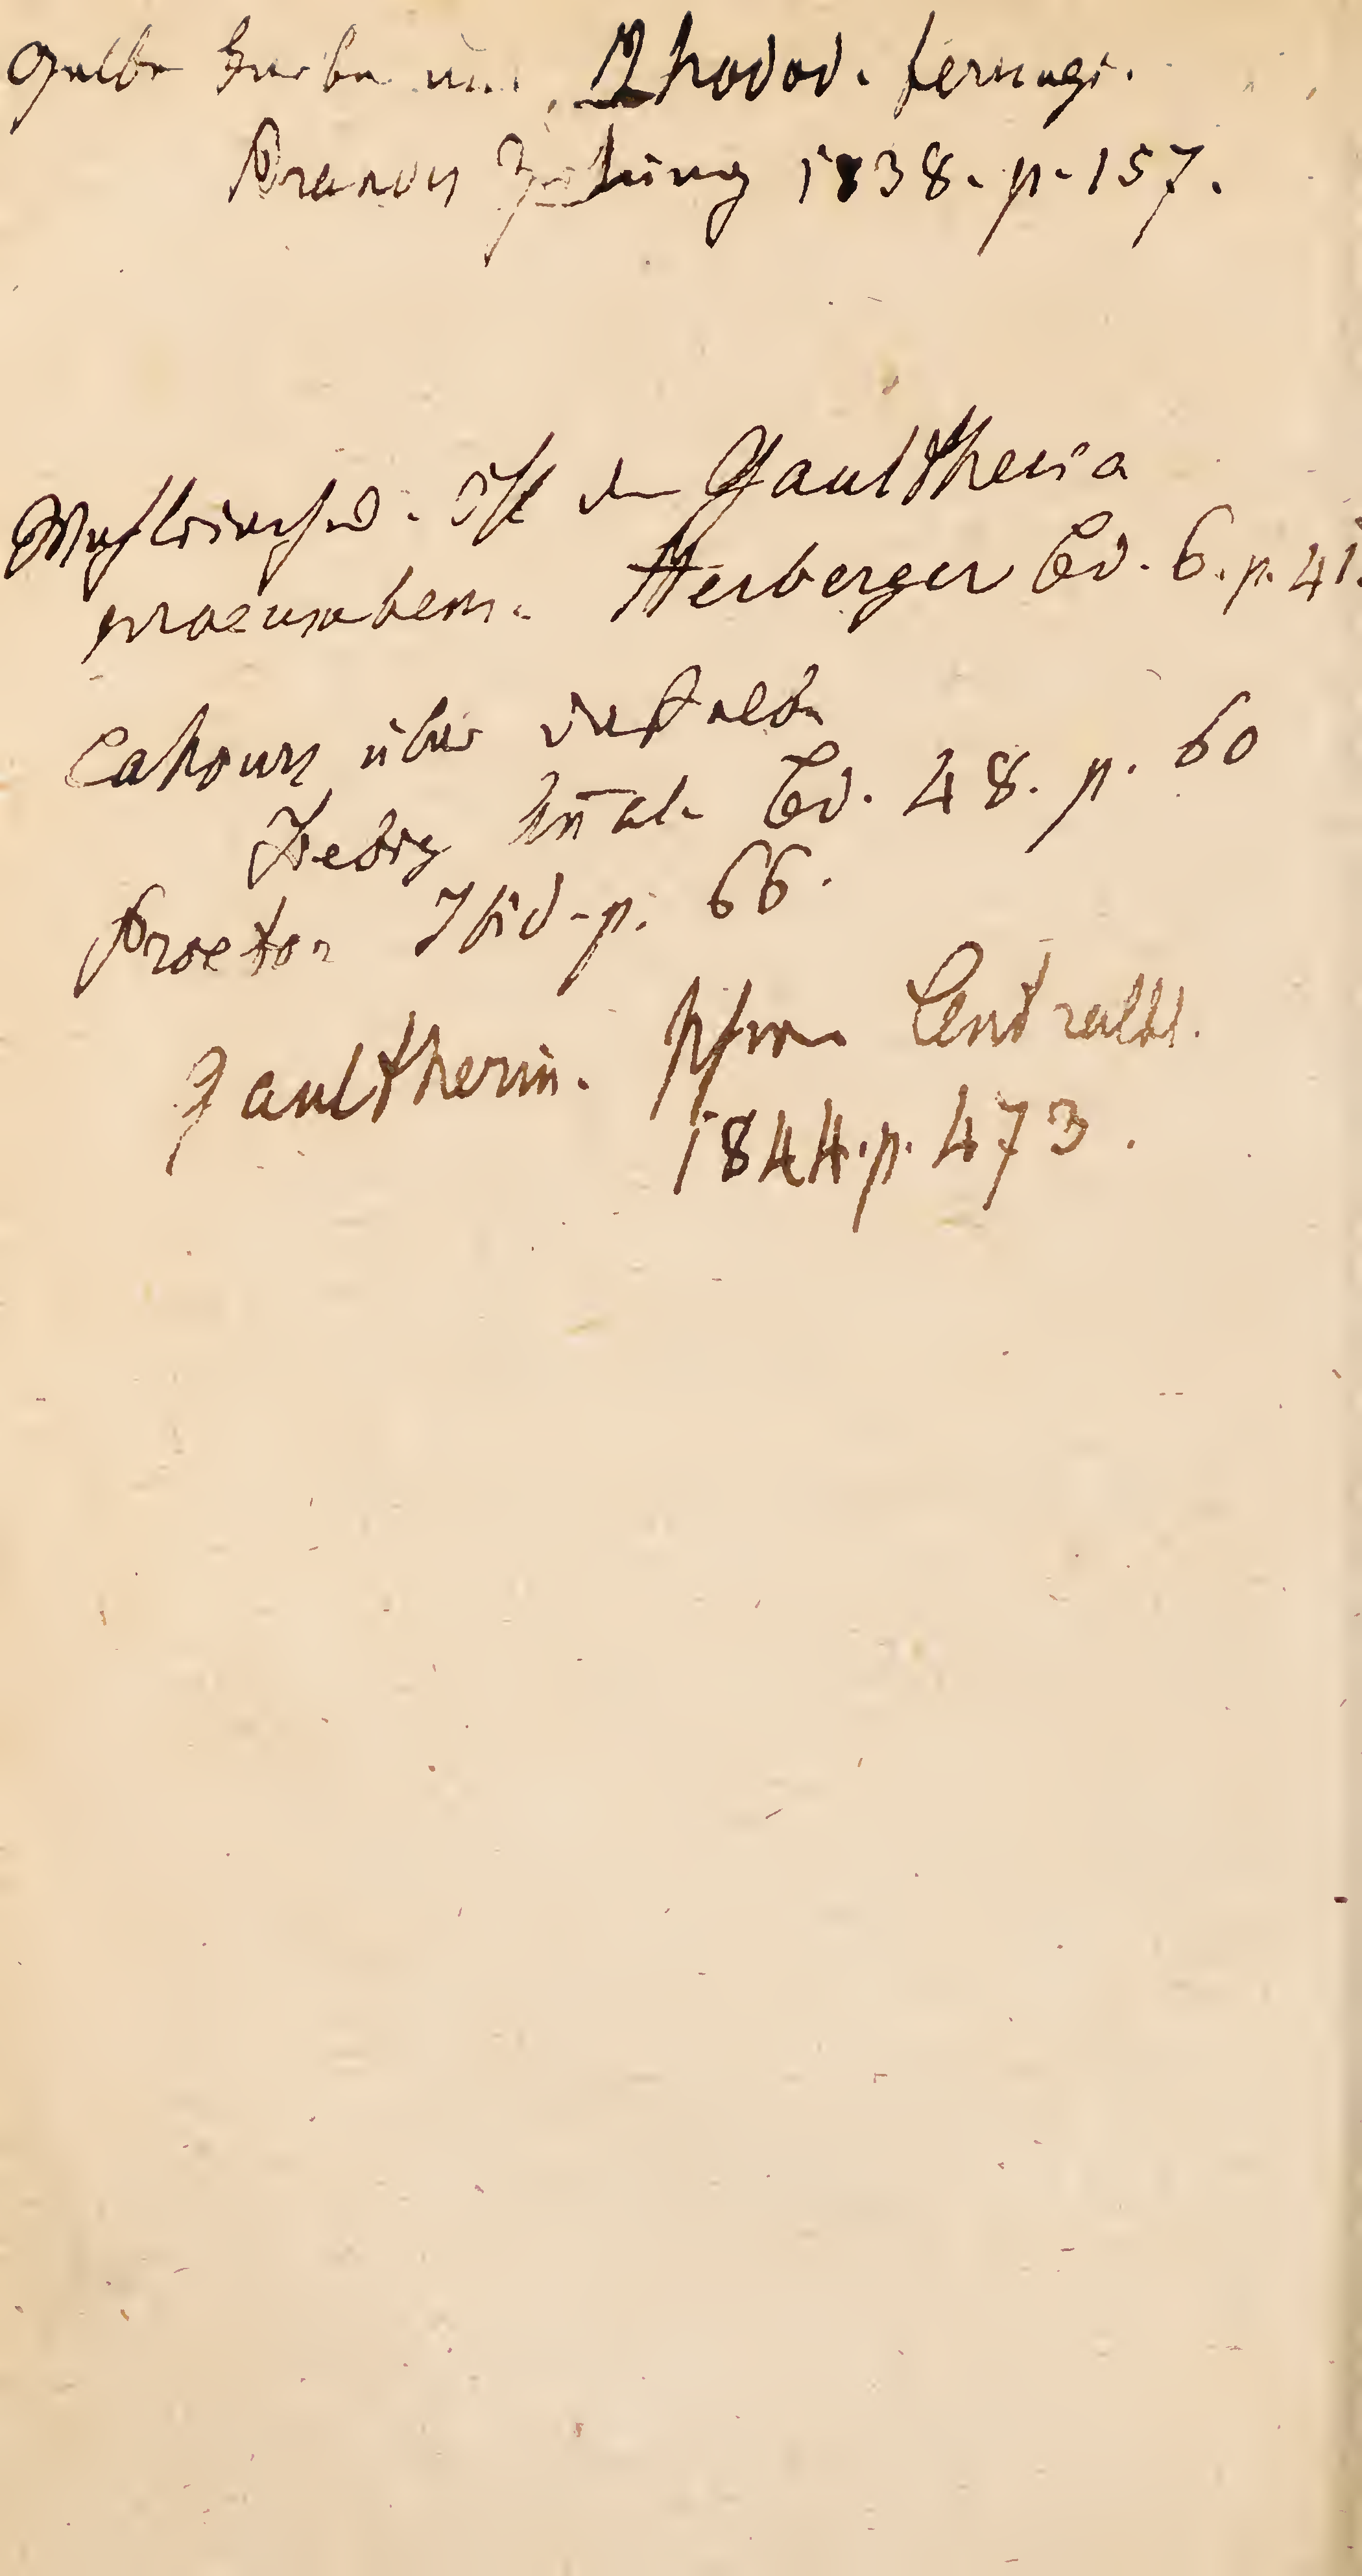 Gelbe Farbe aus Rhodod. ferrug.
Brandes Zeitung 1838. p. 157.
Wohlriechend. Öhl der Gaultheria
procumbens. Herberger Bd. 6. p. 41.
Cahours über dasselbe
Liebig Annal. Bd. 48. p. 60
Procter Ibid. p. 66.
Gaultherin. Pharm Centralbl.
1844. p. 473.